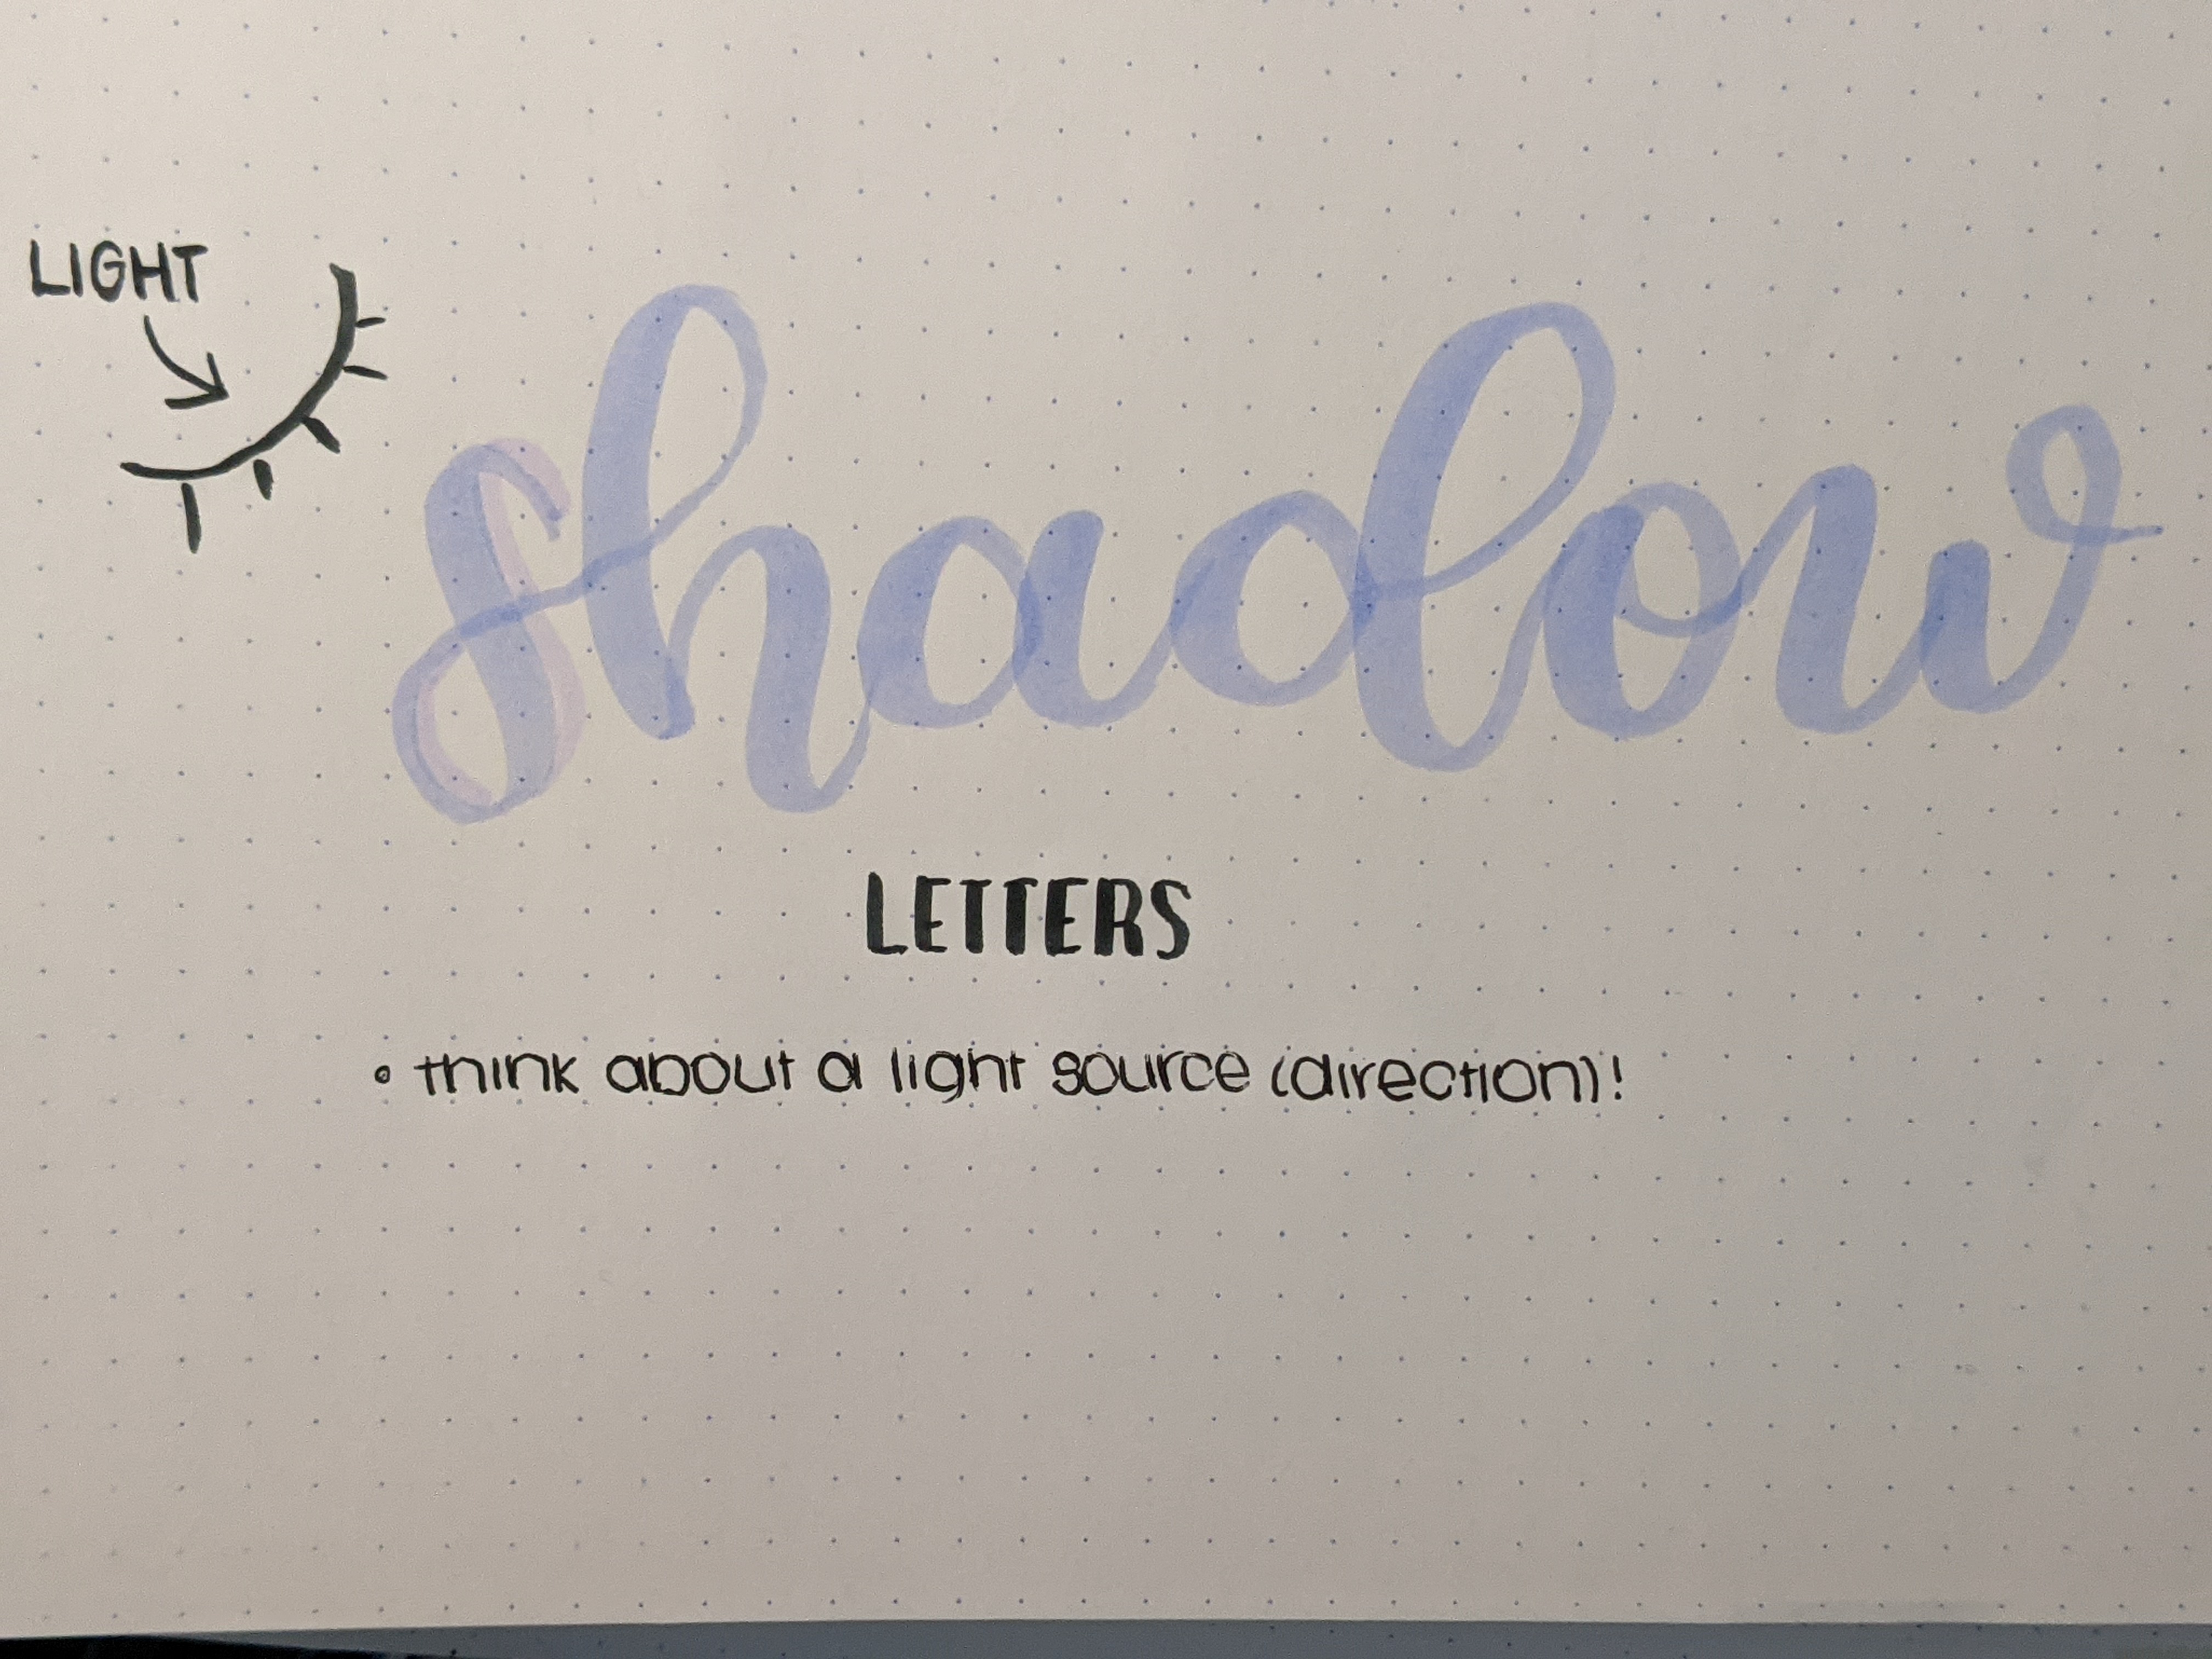 LIGHT
shadow
LETTERS
• think about a light source (direction)!